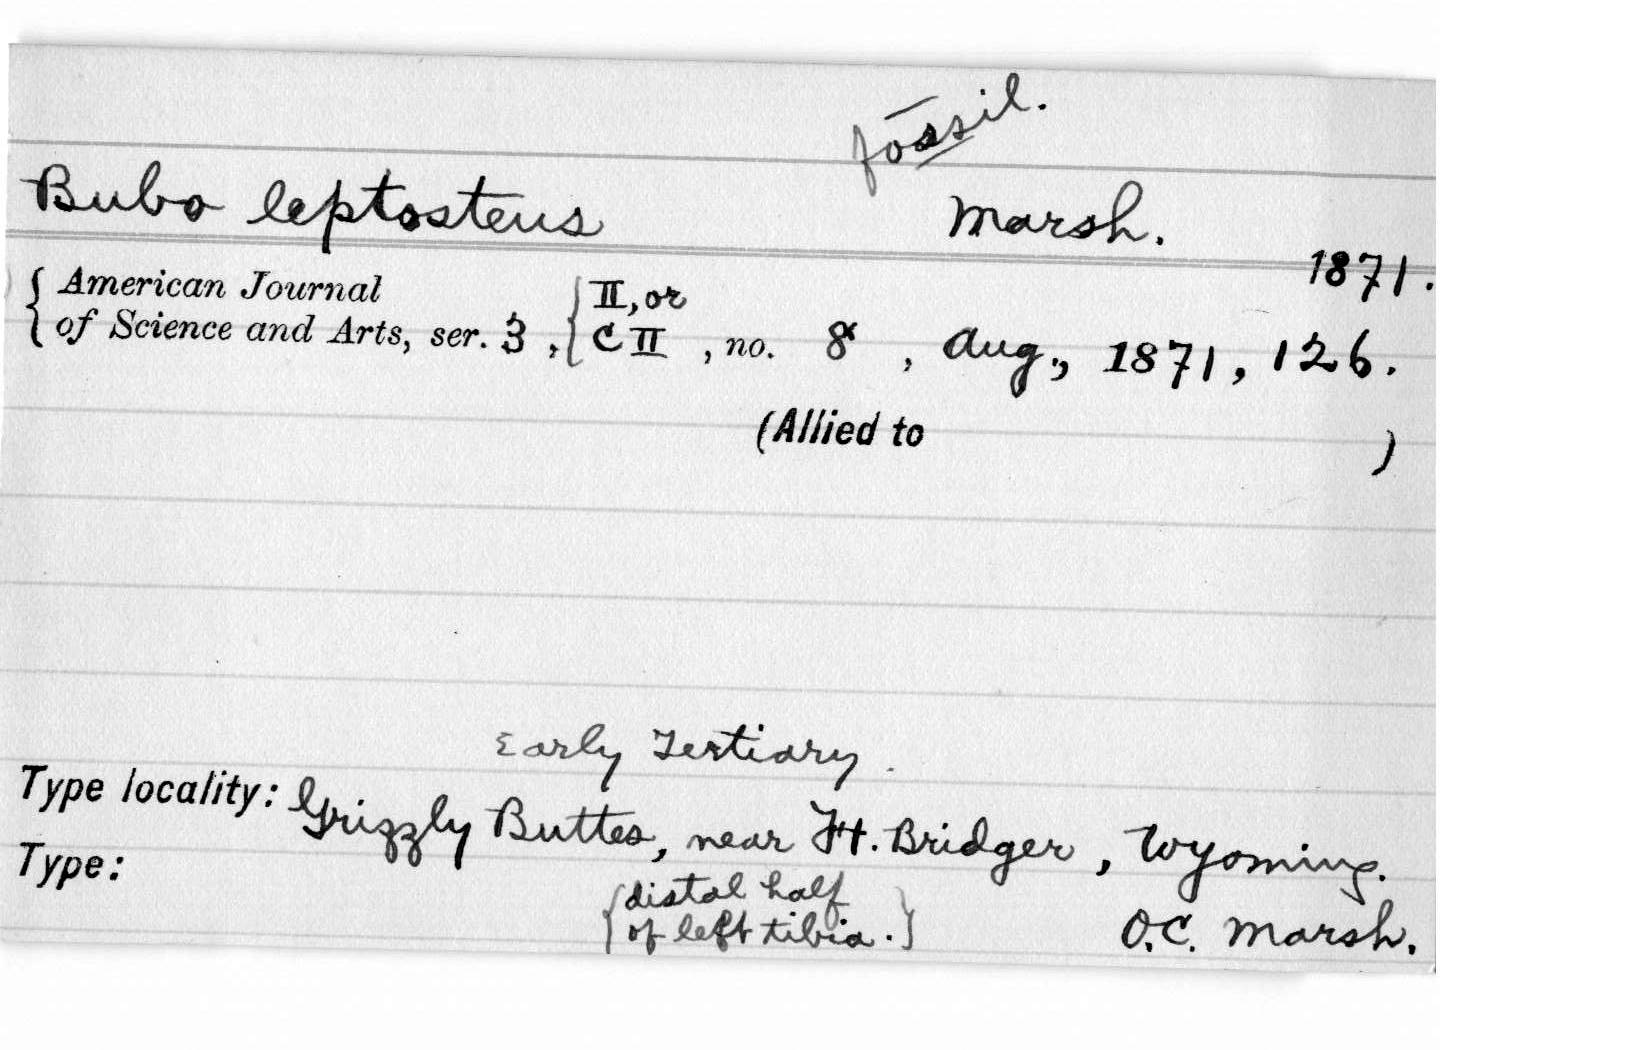 fossil.
Bubo leptosteus Marsh.
1871.
American Journal II, or
of Science and Arts, ser. 3, C II, no. 8, Aug., 1871, 126.
(Allied to )
Early Tertiary.
Type locality: Grizzly Buttes, near Ft. Bridger, Wyoming.
Type:
{distal half
of left tibia.} O.C. Marsh.